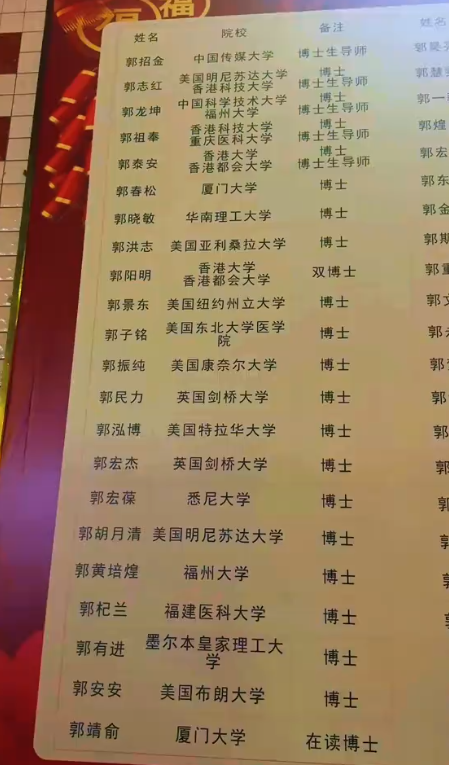 福
福
姓名 院校 备注 姓名
郭招金 中国传媒大学 博士生导师
郭志红 美国明尼苏达大学 博士
香港科技大学 博士生导师
郭龙坤 中国科学技术大学 博士
福州大学 博士生导师
郭一
郭祖奉 香港科技大学 博士
重庆医科大学 博士生导师
郭煌
郭泰安 香港大学 博士
香港都会大学 博士生导师
郭宏
郭春松 厦门大学 博士 郭东
郭晓敏 华南理工大学 博士 郭金
郭洪志 美国亚利桑拉大学 博士
郭阳明 香港大学
香港都会大学 双博士
郭景东 美国纽约州立大学 博士
郭子铭 美国东北大学医学
院 博士
郭振纯 美国康奈尔大学 博士
郭民力 英国剑桥大学 博士
郭泓博 美国特拉华大学 博士
郭宏杰 英国剑桥大学 博士
郭宏葆 悉尼大学 博士
郭胡月清 美国明尼苏达大学 博士
郭黄培煌 福州大学 博士
郭杞兰 福建医科大学 博士
郭有进 墨尔本皇家理工大
学 博士
郭安安 美国布朗大学 博士
郭靖俞 厦门大学 在读博士